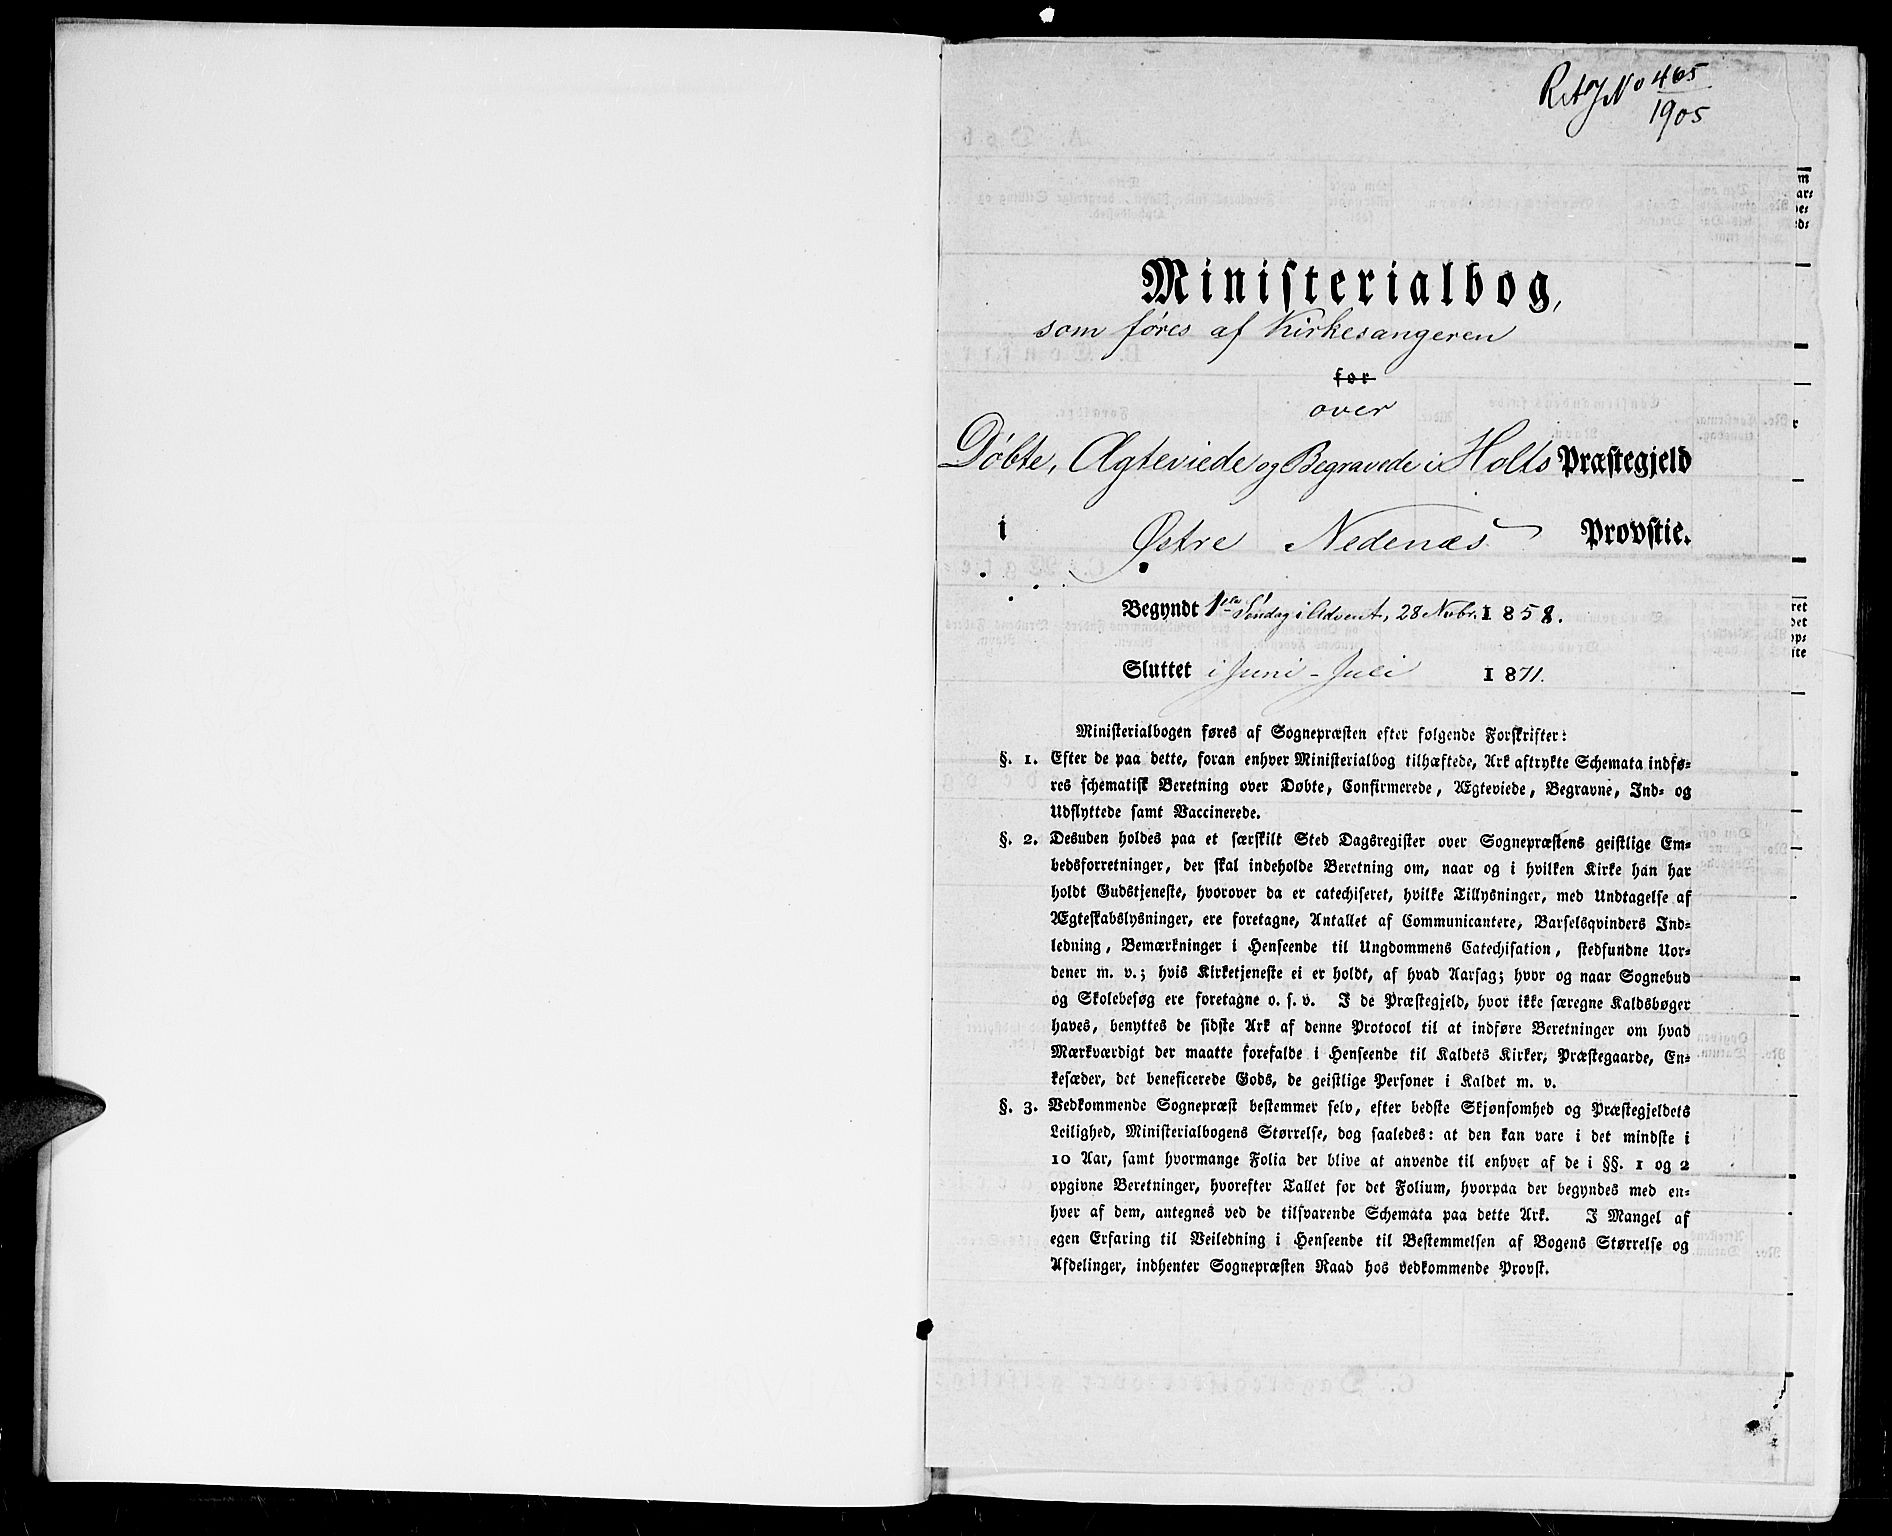 No 465
1905
Ministerialbog,
som føres af Kirkesangeren
for
over
Døbte, Ægteviede og Begravede i Holts Præstegjeld
i Østre Nedenæs Provstie.
Begyndt 1ste Søndag i Advent, 28 Novbr. 1858.
Sluttet i Juni - Juli 1871.
Ministerialbogen føres af Sognepræsten efter følgende Forskrifter:
§. 1. Efter de paa dette, foran enhver Ministerialbog tilhæftede, Ark aftrykte Schemata indfø=
res schematisk Beretning over Døbte, Confirmerede, Ægteviede, Begravne, Ind= og
Udflyttede samt Vaccinerede.
§. 2. Desuden holdes paa et særskilt Sted Dagsregister over Sognepræstens geistlige Em=
bedsforretninger, der skal indeholde Beretning om, naar og i hvilken Kirke han har
holdt Gudstjeneste, hvorover da er catechiseret, hvilke Tillysninger, med Undtagelse af
Ægteskabslysninger, ere foretagne, Antallet af Communicantere, Barselsqvinders Ind=
ledning, Bemærkninger i Henseende til Ungdommens Catechisation, stedfundne Uor=
dener m. v.; hvis Kirketjeneste ei er holdt, af hvad Aarsag; hvor og naar Sognebud
og Skolebesøg ere foretagne o. s. v. I de Præstegjeld, hvor ikke særegne Kaldsbøger
haves, benyttes de sidste Ark af denne Protocol til at indføre Beretninger om hvad
Mærkværdigt der maatte forefalde i Henseende til Kaldets Kirker, Præstegaarde, En=
kesæder, det beneficerede Gods, de geistlige Personer i Kaldet m. v.
§. 3. Vedkommende Sognepræst bestemmer selv, efter bedste Skjønsomhed og Præstegjeldets
Leilighed, Ministerialbogens Størrelse, dog saaledes: at den kan vare i det mindste i
10 Aar, samt hvormange Folia der blive at anvende til enhver af de i §§. 1 og 2
opgivne Beretninger, hvorefter Tallet for det Folium, hvorpaa der begyndes med en=
hver af dem, antegnes ved de tilsvarende Schemata paa dette Ark. I Mangel af
egen Erfaring til Veiledning i Henseende til Bestemmelsen af Bogens Størrelse og
Afdelinger, indhenter Sognepræsten Raad hos vedkommende Provst.